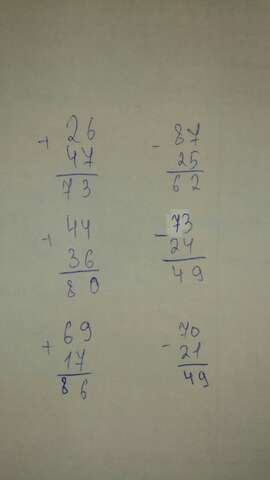 + 26
47
73
- 87
25
62
+ 44
36
80
- 73
24
49
+ 69
17
86
- 70
21
49